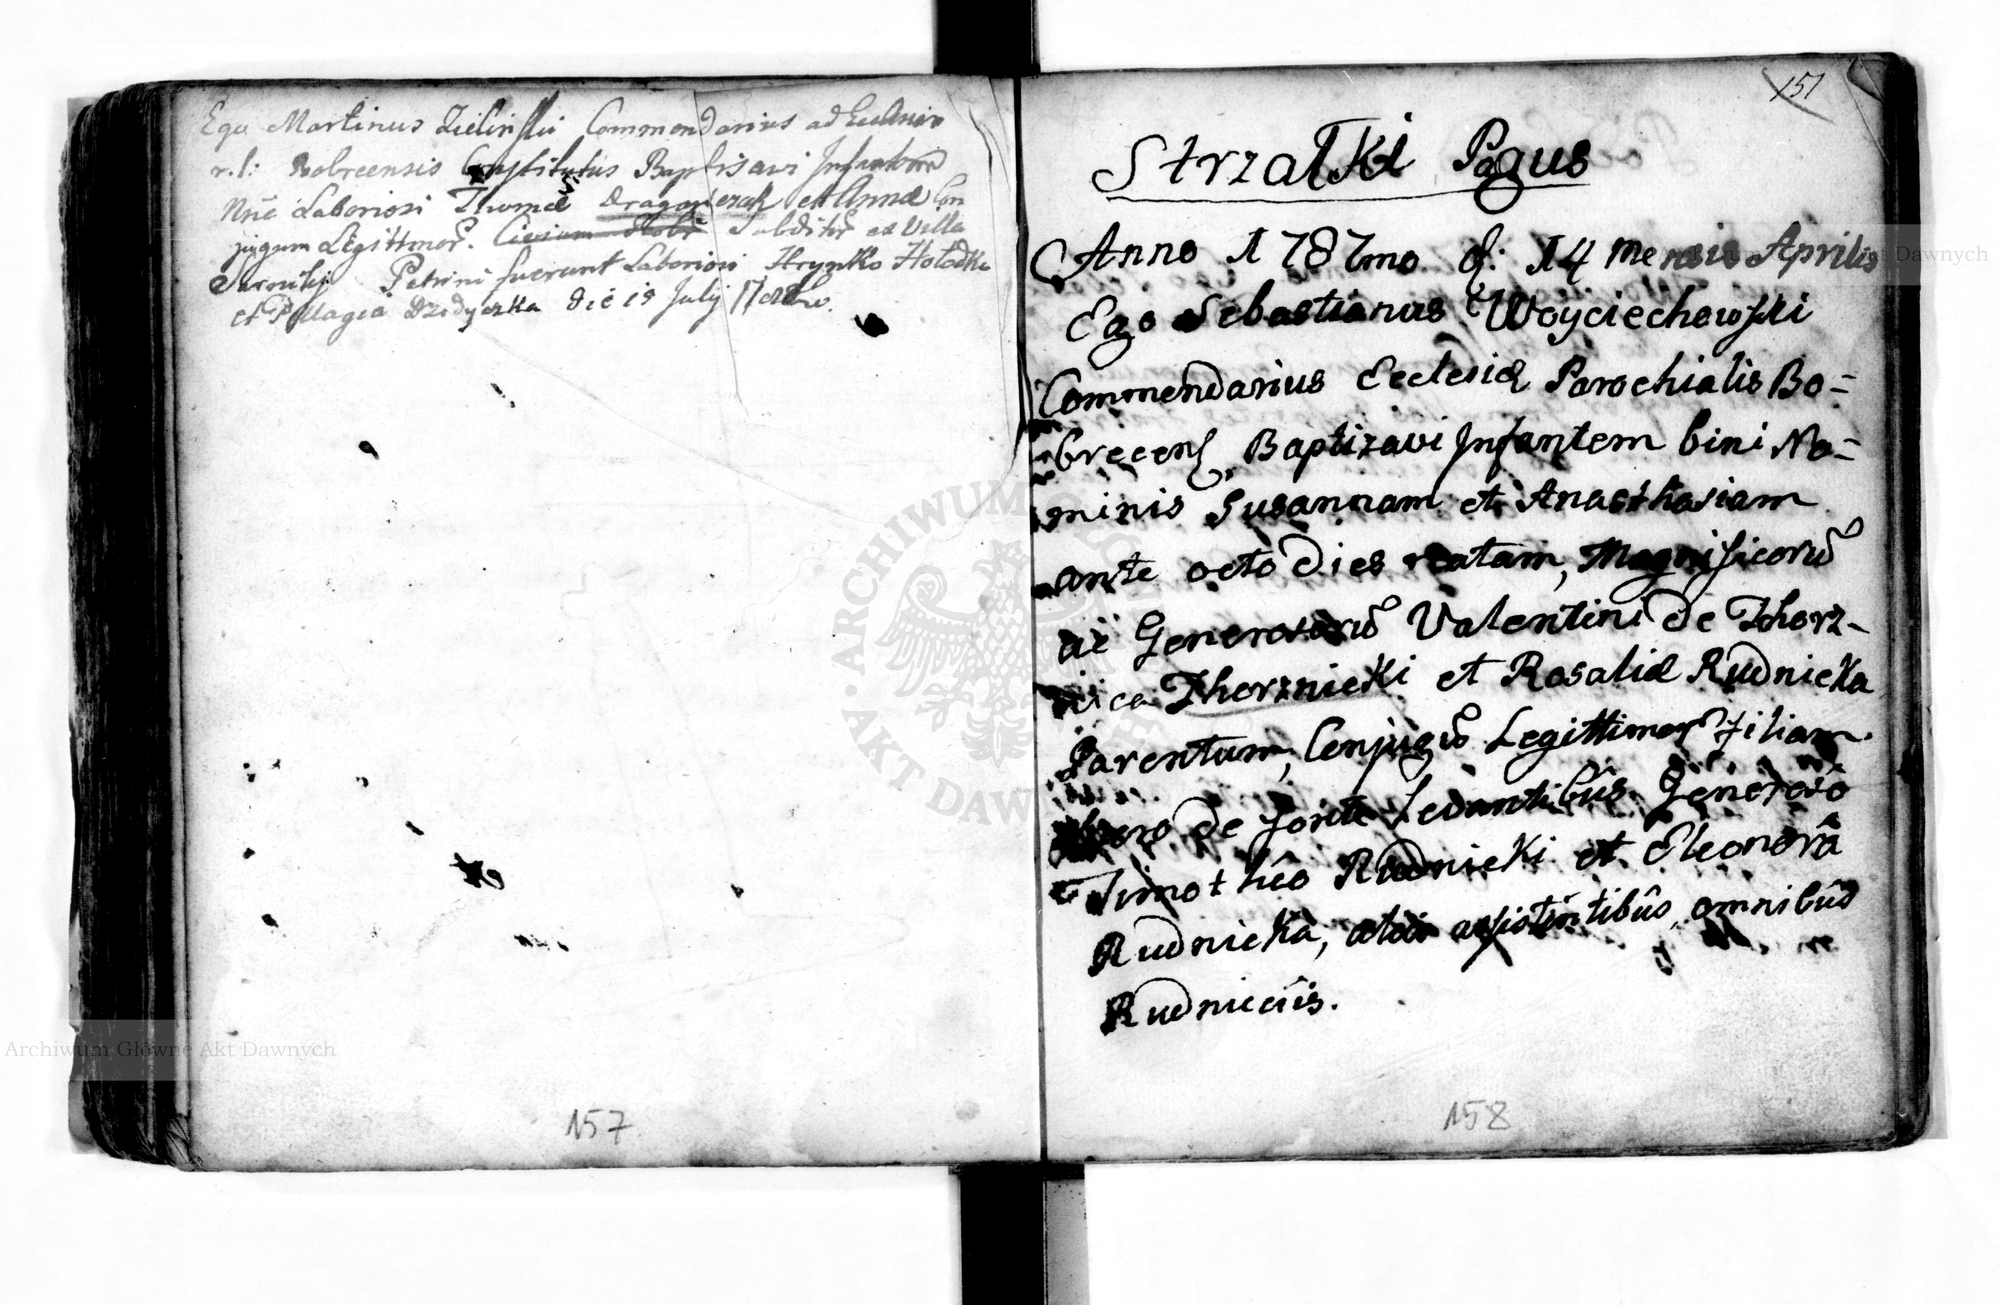 Ego Martinus Zielinski Commendarius ad Ecclesiam
r. l: Bobrcensis Constitutus Baptisavi Infantem
Nne Laboriosi Thomæ Dragonczak et Annæ Con
jugum Legittimor. Subditor ex Villa
Patrini fuerunt Laboriosi Hrynko Hołodki
et Magia Dzidyczka die 18 July
151
Strzałki Pagus
Anno 1787mo d: 14 Mensis Aprilis
Ego Sebastianus Woyciechowski
Commendarius Ecclesiæ Parochialis Bo-
brecens, Baptizavi Infantem bini No-
minis Susannam et Anasthasiam
ante octo dies natam, Magnificorũ
ac Generosorũ Valentini de Thorz-
nica Thorznicki et Rosaliæ Rudnicka
Parentum, Conjugũ Legittimor Filiam.
de fonte Levantibûs Generoso
Timothêo Rudnicki et Eleonorâ
Rudnicka, assistentibûs, omnibûs
Rudniciis.
157
158
ARCHIWUM GŁÓWNE AKT DAWNYCH
Archiwum Główne Akt Dawnych
Archiwum Główne Akt Dawnych